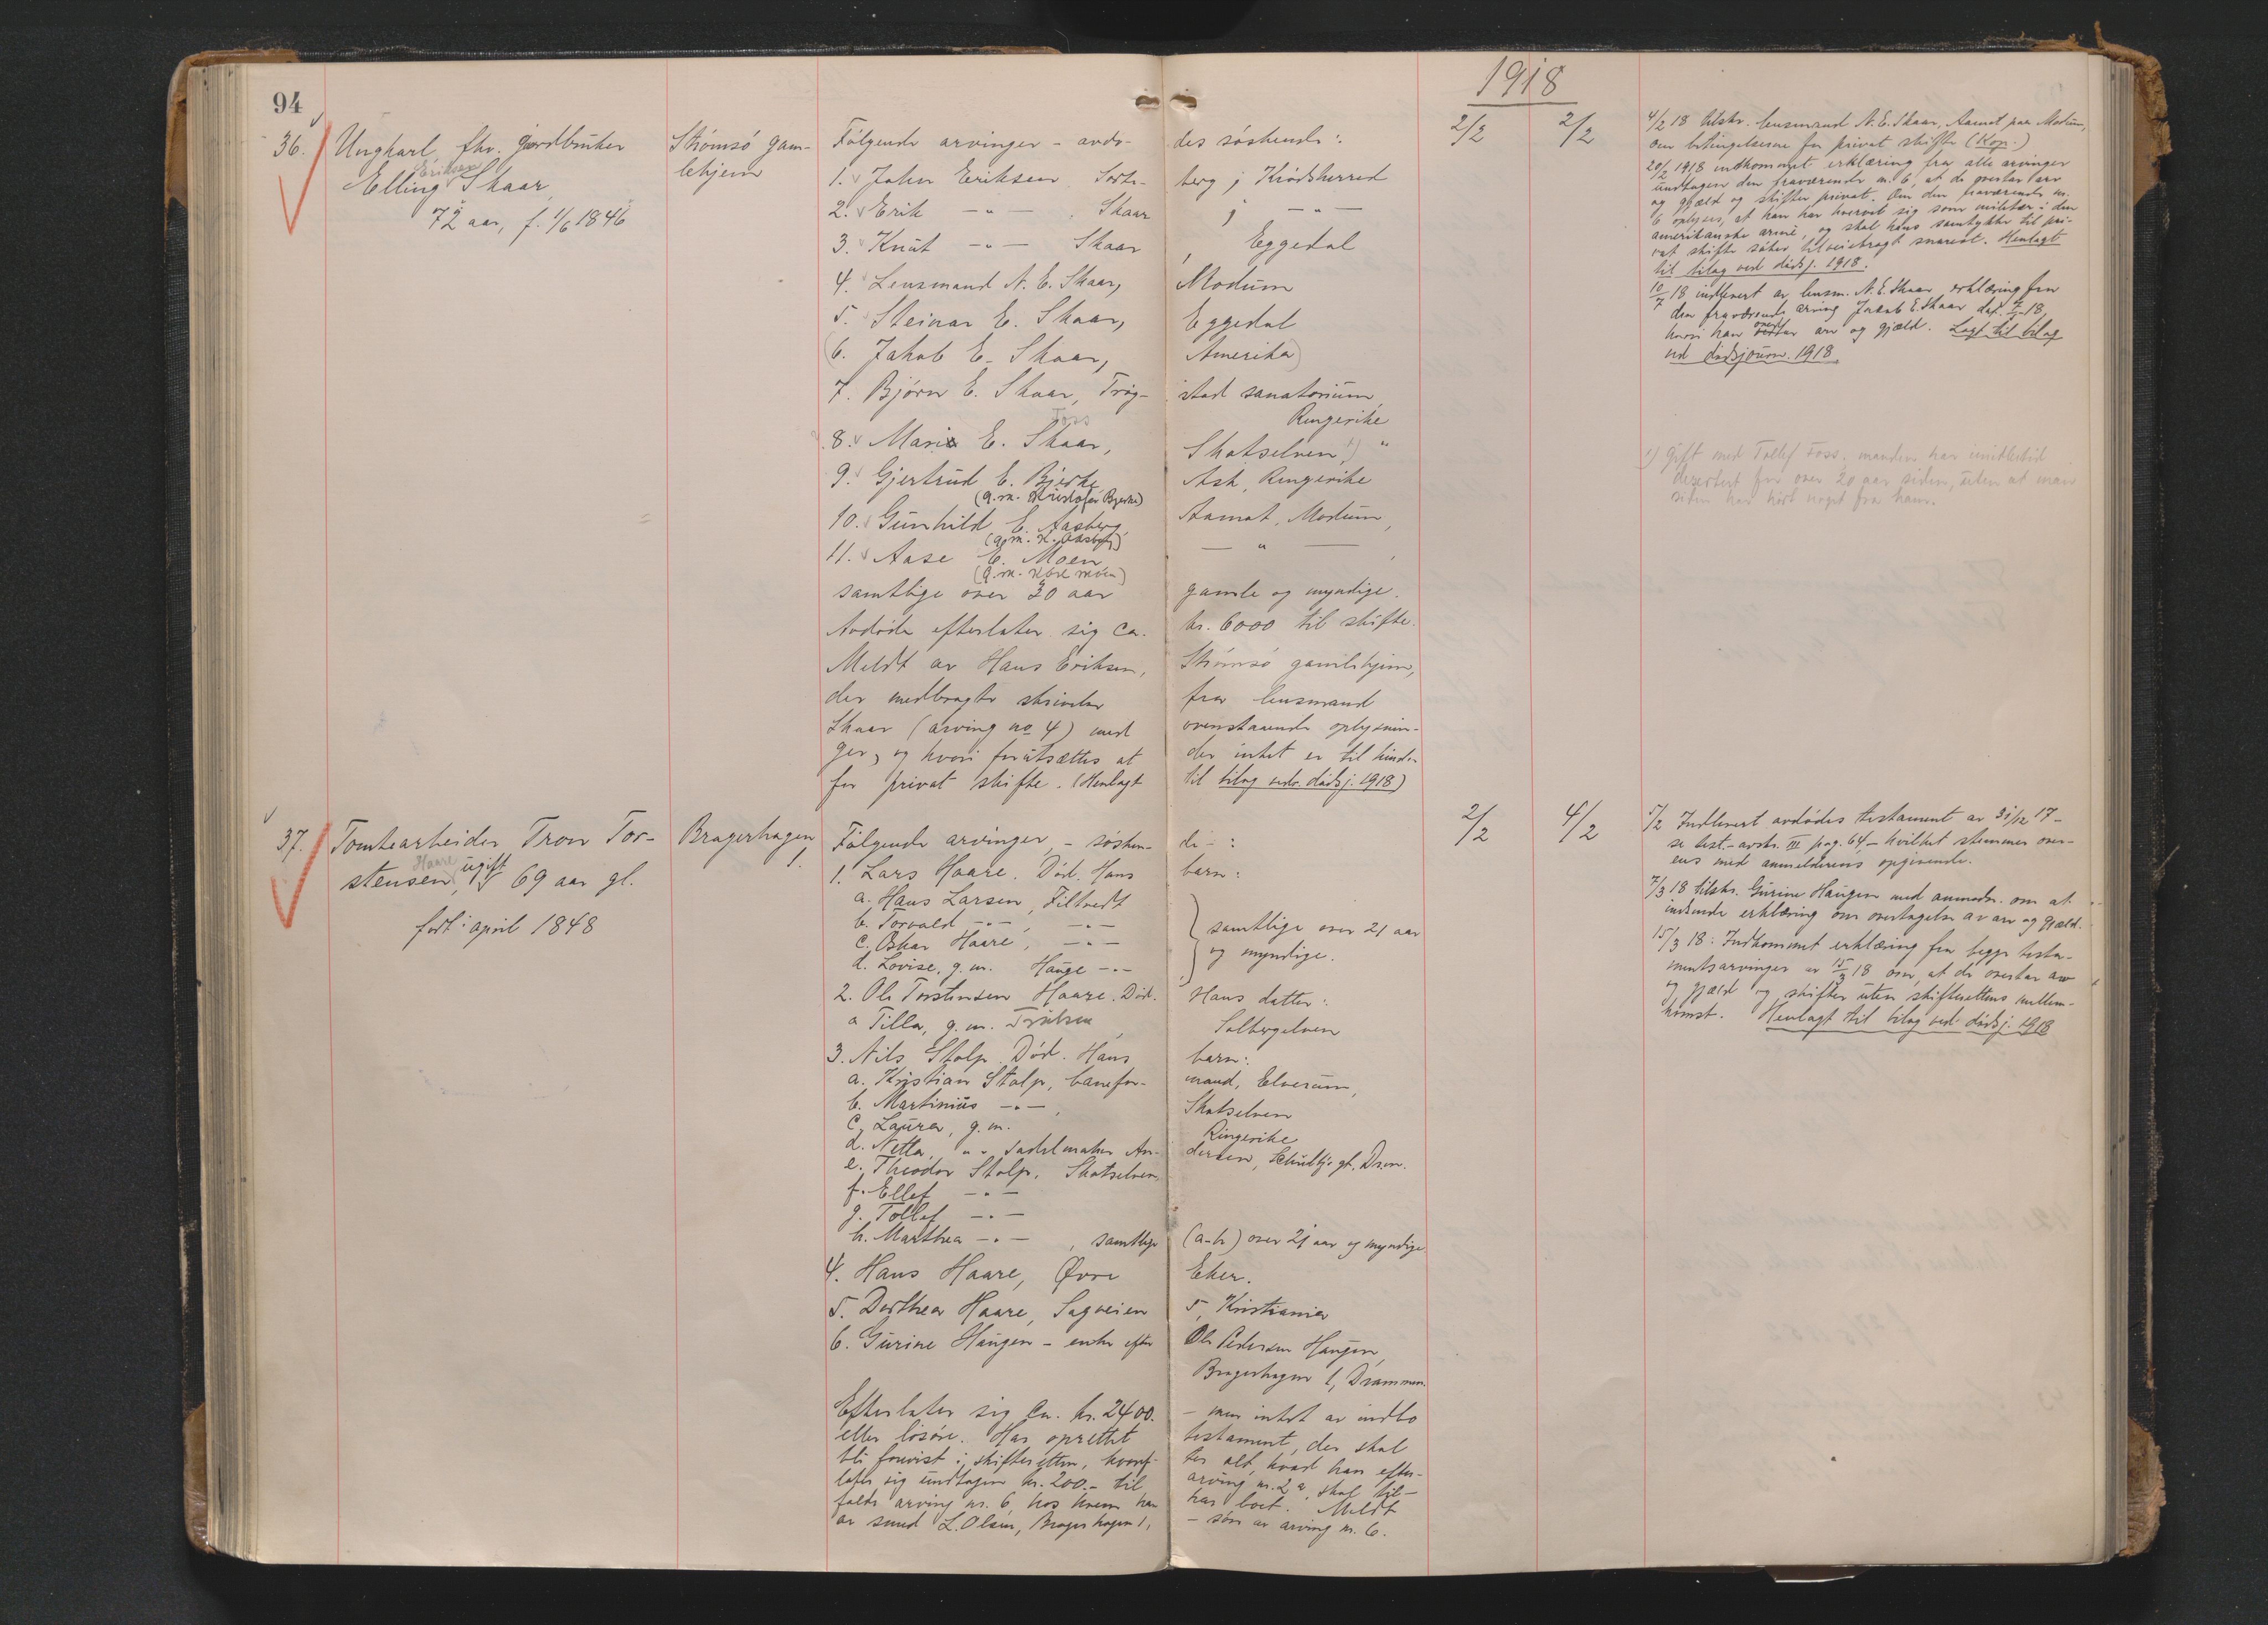 94
1918
36. Ungkarl, fhv. gaardbruker
Eriksen
Elling Skaar,
72 aar, f. 1/6 1846
Strømsø gam-
lehjem
Følgende arvinger - avdø- des søskende:
1. John Eriksen Sorte- berg i Krødsherred
2. Erik -"- , Skaar i -"-
3. Knut -"- Skaar , Eggedal
4. Lensmand N. E. Skaar, Modum
5. Steinar E. Skaar, Eggedal
(6. Jakob E. Skaar, Amerika)
7. Bjørn E. Skaar, Tryg- stad sanatorium,
Ringerike
Foss
8. Marie E. Skaar, Skotselven 1) "
9. Gjertrud E. Bjerke Ask, Ringerike
(g.m. Kristofer Bjerke)
10. Gunhild E. Aasberg, Aamot, Modum,
(g.m. K. Aasberg)
11. Aase E. Moen - " - ,
(g.m. Kåre Moen)
samtlige over 30 aar gamle og myndige.
Avdøde efterlater sig ca. kr. 6000 til skifte.
Meldt av Hans Eriksen, Strømsø gamlehjem,
der medbragte skrivelse fra lensmand
Skaar (arving no 4) med ovenstaaende oplysnin-
ger, og hvori forutsættes at der intet er til hinder
for privat skifte. (Henlagt til bilag vedr. dødsj. 1918)
2/2
2/2
4/2 18 tilskr. lensmand N. E. Skaar, Aamot paa Modum,
om betingelserne for privat skifte (Kop.)
20/2 1918 indkommet erklæring fra alle arvinger
undtagen den fraværende nr. 6, at de overtar arv
og gjæld og skifter privat. Om den fraværende nr.
6 oplyses, at han har hvervet sig som militær i den
amerikanske armé, og skal hans samtykke til pri-
vat skifte søkes tilveiebragt snarest. Henlagt
til bilag ved dødsj. 1918.
10/7 18 indlevert av lensm. N. E. Skaar erklæring fra
den fraværende arving Jakob E. Skaar dat. 7/7 18,
hvori han overtar arv og gjæld. Lagt til bilag
ved dødsjourn. 1918
1) Gift med Tollef Foss; manden har imidlertid
desertert for over 20 aar siden, uten at man
siden har hørt noget fra ham.
37. Tomtearbeider Tron Tor-
Haare
stensen, ugift, 69 aar gl.
født: april 1848
Bragerhagen
1.
Følgende arvinger - søsken- de - :
1. Lars Haare. Død. Hans barn:
a. Hans Larsen, Filtvedt
b. Torvald -"- , -"-
c. Oskar Haare, -"-
d. Lovise, g.m. Hauge -"-
samtlige over 21 aar
og myndige.
2. Ole Torstensen Haare. Død. Hans datter:
a Tilla, g.m. Solbergelven
3. Nils Stolp. Død. Hans barn:
a. Kristian Stolp, banefor- mand, Elverum,
b. Martinius -"- , Skotselven
c. Laura, g.m. Ringerike
d. Netta, "" sadelmaker An- dersen, gt. Drm.
e. Theodor Stolp, Skotselven
f. Ellef -"-
g. Tollef -"-
h. Marthea -"- , samtlige (a-h) over 21 aar og myndige
4. Hans Haare, Øvre Eker.
5. Dorthea Haare, Sagveien 5, Kristiania
6. Gurine Haugen - enke efter Ole Pedersen Haugen,
Bragerhagen 1, Drammen.
Efterlater sig ca. kr. 2400. - men intet av indbo
eller løsøre. Har oprettet testament, der skal
bli forevist i skifteretten, hvoref- ter alt, hvad han efter-
later sig undtagen kr. 200.- til arving nr. 2 a, skal til-
falde arving nr. 6, hos hvem han har boet. Meldt
av smed L. Olsen, Bragerhagen 1, - søn av arving nr. 6.
2/2
4/2
5/2 Indlevert avdødes testament av 31/12 17 -
se test.-avskr. III pag. 64 - hvilket stemmer over-
ens med anmelderens opgivende.
7/3 18 tilskr. Gurine Haugen med anmodn. om at
indsende erklæring om overtagelse av arv og gjæld.
15/3 18: Indkommet erklæring fra begge testa-
mentsarvinger av 15/3 18 om, at de overtar arv
og gjæld og skifter uten skifterettens mellem-
komst. Henlagt til bilag ved dødsj. 1918